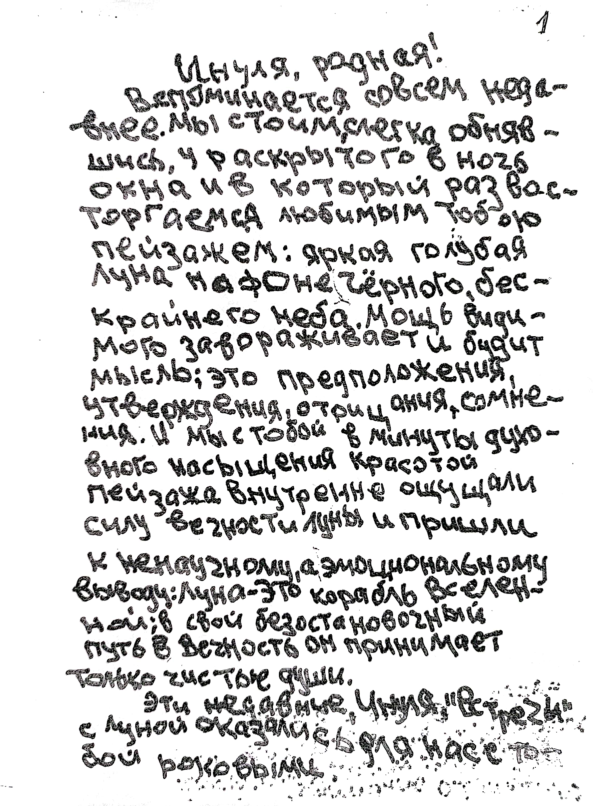 1
Инуля, родная!
Вспоминается совсем неда-
внее. Мы стоим, слегка обняв-
шись, у раскрытого в ночь
окна и в который раз вос-
торгаемся любимым тобою
пейзажем: яркая голубая
луна на фоне чёрного, бес-
крайнего неба. Мощь види-
мого завораживает и будит
мысль; это предположения,
утверждения, отрицания, сомне-
ния. И мы с тобой в минуты духо-
вного насыщения красотой
пейзажа внутренне ощущали
силу вечности луны и пришли
к ненаучному, а эмоциональному
выводу: луна-это корабль вселен-
ной; в свой безостановочный
путь в вечность он принимает
только чистые души.
Эти недавние, Инуля, "встречи"
с луной оказались для нас с то-
бой роковыми.